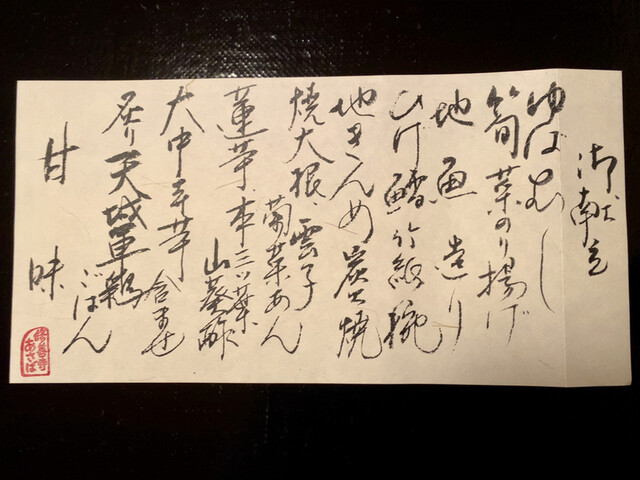 御献立
ゆばむし
筍菜のり揚げ
地魚造り
ひげ鱈竹紙椀
地きんめ炭火焼
焼大根、雲子
菊菜あん
蓮芋、本三ッ葉
山葵酢
大中寺芋含ませ
炙り天城軍鶏
ごはん
甘味
修善寺
あさば